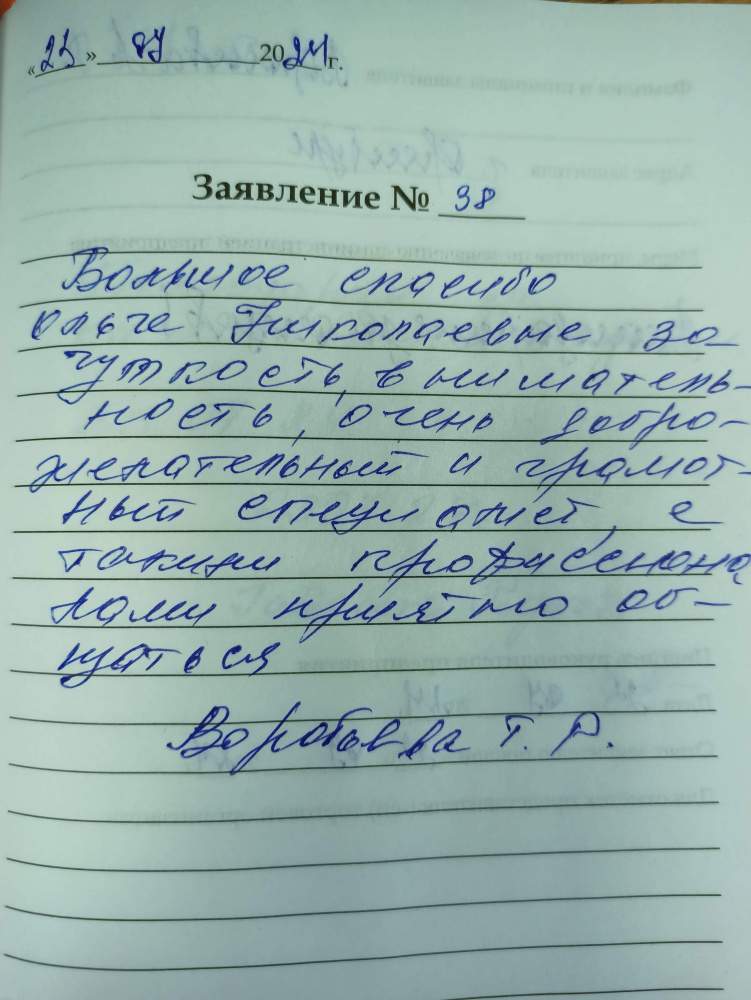 «23» 07 2024 г.
Заявление № 38
Большое спасибо
ольге Николаевне за
чуткость, вниматель-
ность, очень добро-
желательный и грамот-
ный специалист, с
такими профессиона
лами приятно об-
щаться
Воробьева Т. Р.